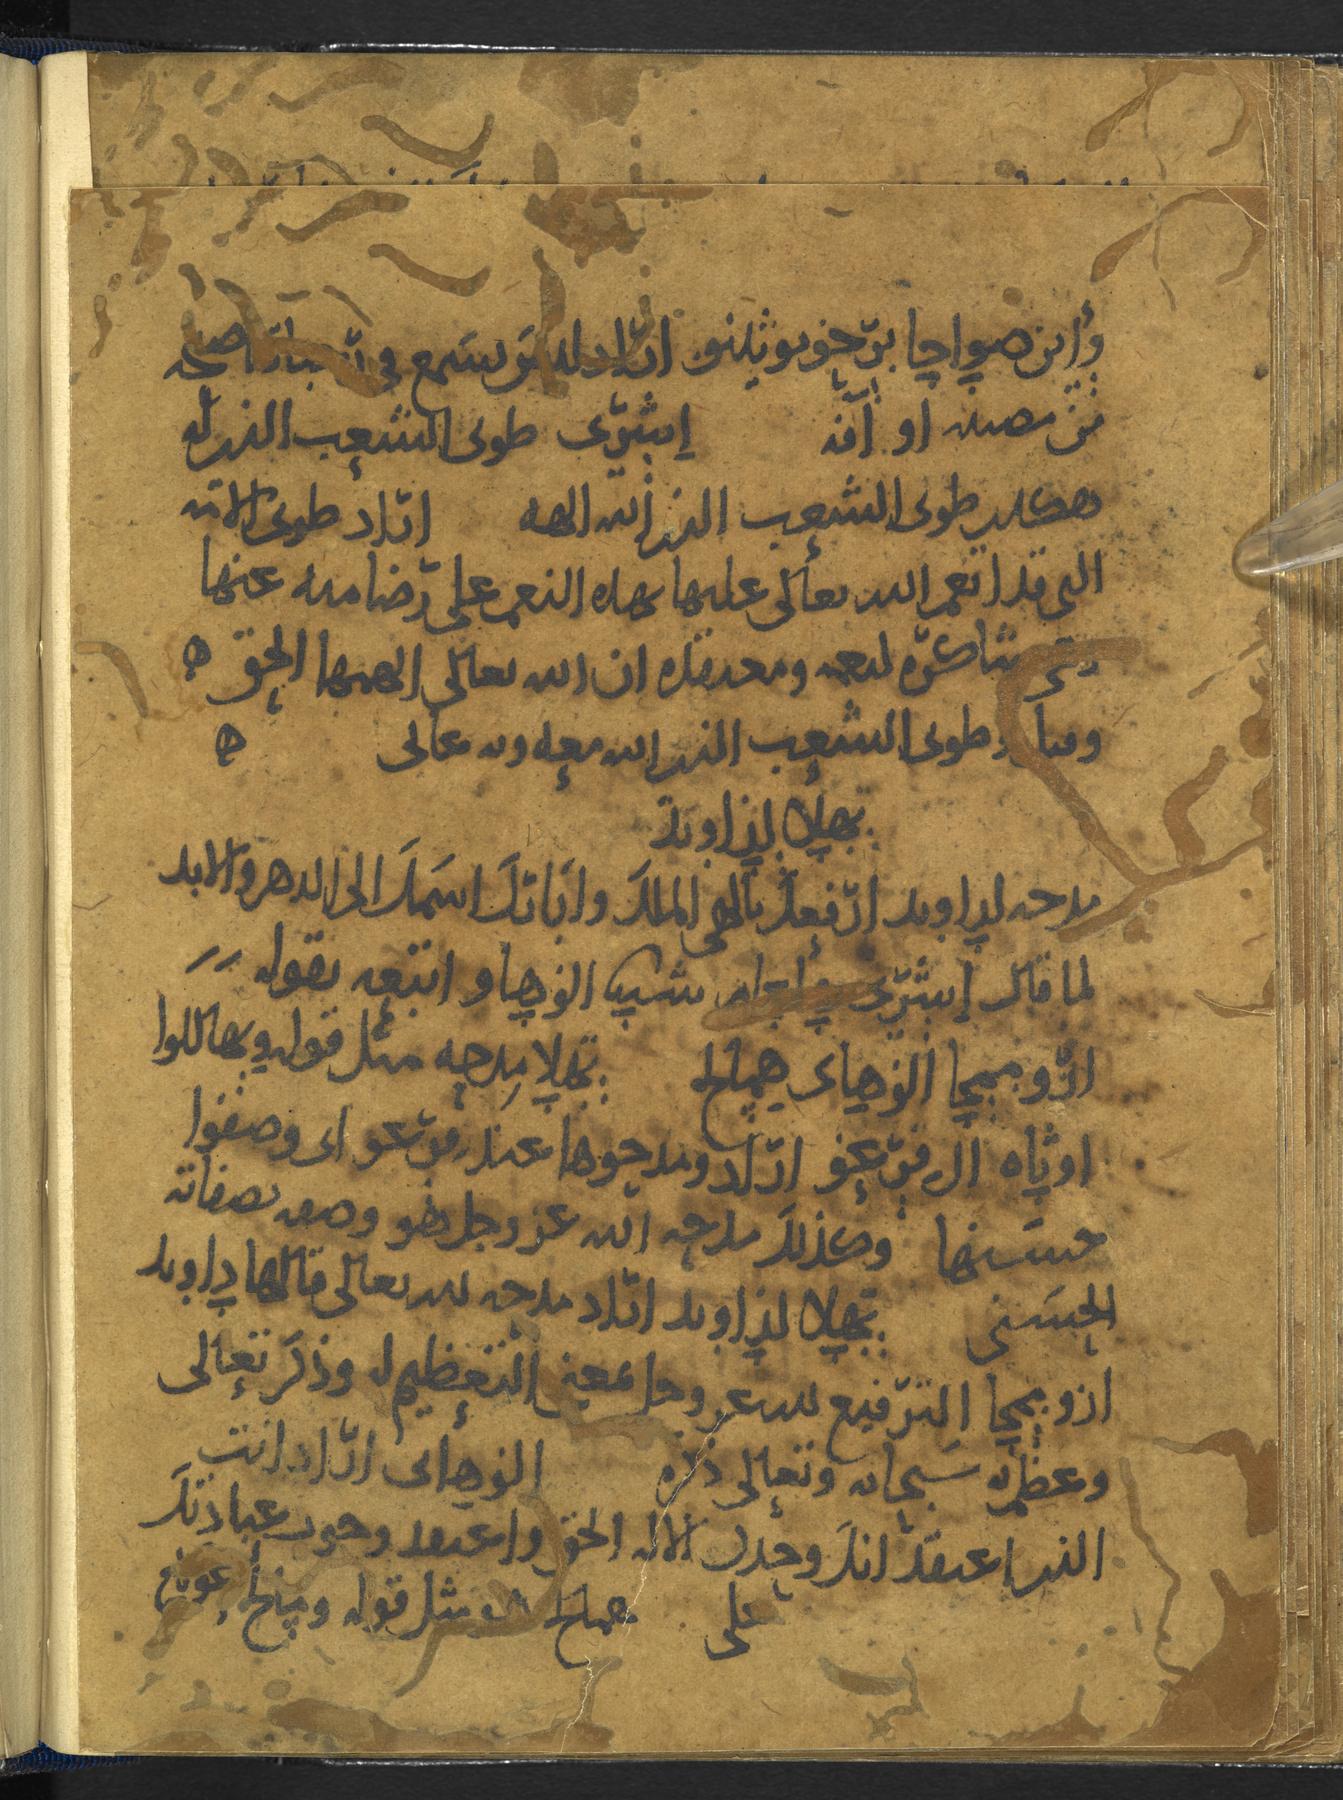 وأين صواحا برحوبوثينو اراد ليس يسمع في رحباتنا صيحه
من مصيبه او آفه إشري طوبى الشعب الذي له
هكذي طوبى الشعب الذي الله الهه اراد طوبى الامه
التي قد انعم الله تعالى عليها بهذه النعم على رضا منه عنها
وهي شاكره لنعمه ومعتقده ان الله تعالى الهها الحق ه
وقيل طوبى الشعب الذي الله معه وله تعالى ه
تهلا لذاويد
مدحه لداويد ارفعك يالهي الملك وابارك اسمك الى الدهر والابد
لما قال إشري الوهاو اتبعه بقوله
اروميمخا الوهاي هميلخ تهلا مدحه مثل قوله ويهاللوا
اوثاه ال فرعو اراد ومدحوها عند فرعو اى وصفوا
حسنها وكذلك مدحه الله عز وجل هو وصفه بصفاته
الحسنى تهلا لذاويد اراد مدحه لله تعالى قالها داويد
اروميمخا الترفيع لله عز وجل بمعنى التعظيم له وذكر تعالى
وعظمه سبحانه وتعالى ذكره الوهاى اراد انت
الذي اعتقد انك وحدك الاله الحق واعتقد وجوب عبادتك
على هميلخ مثل قوله وميلخ